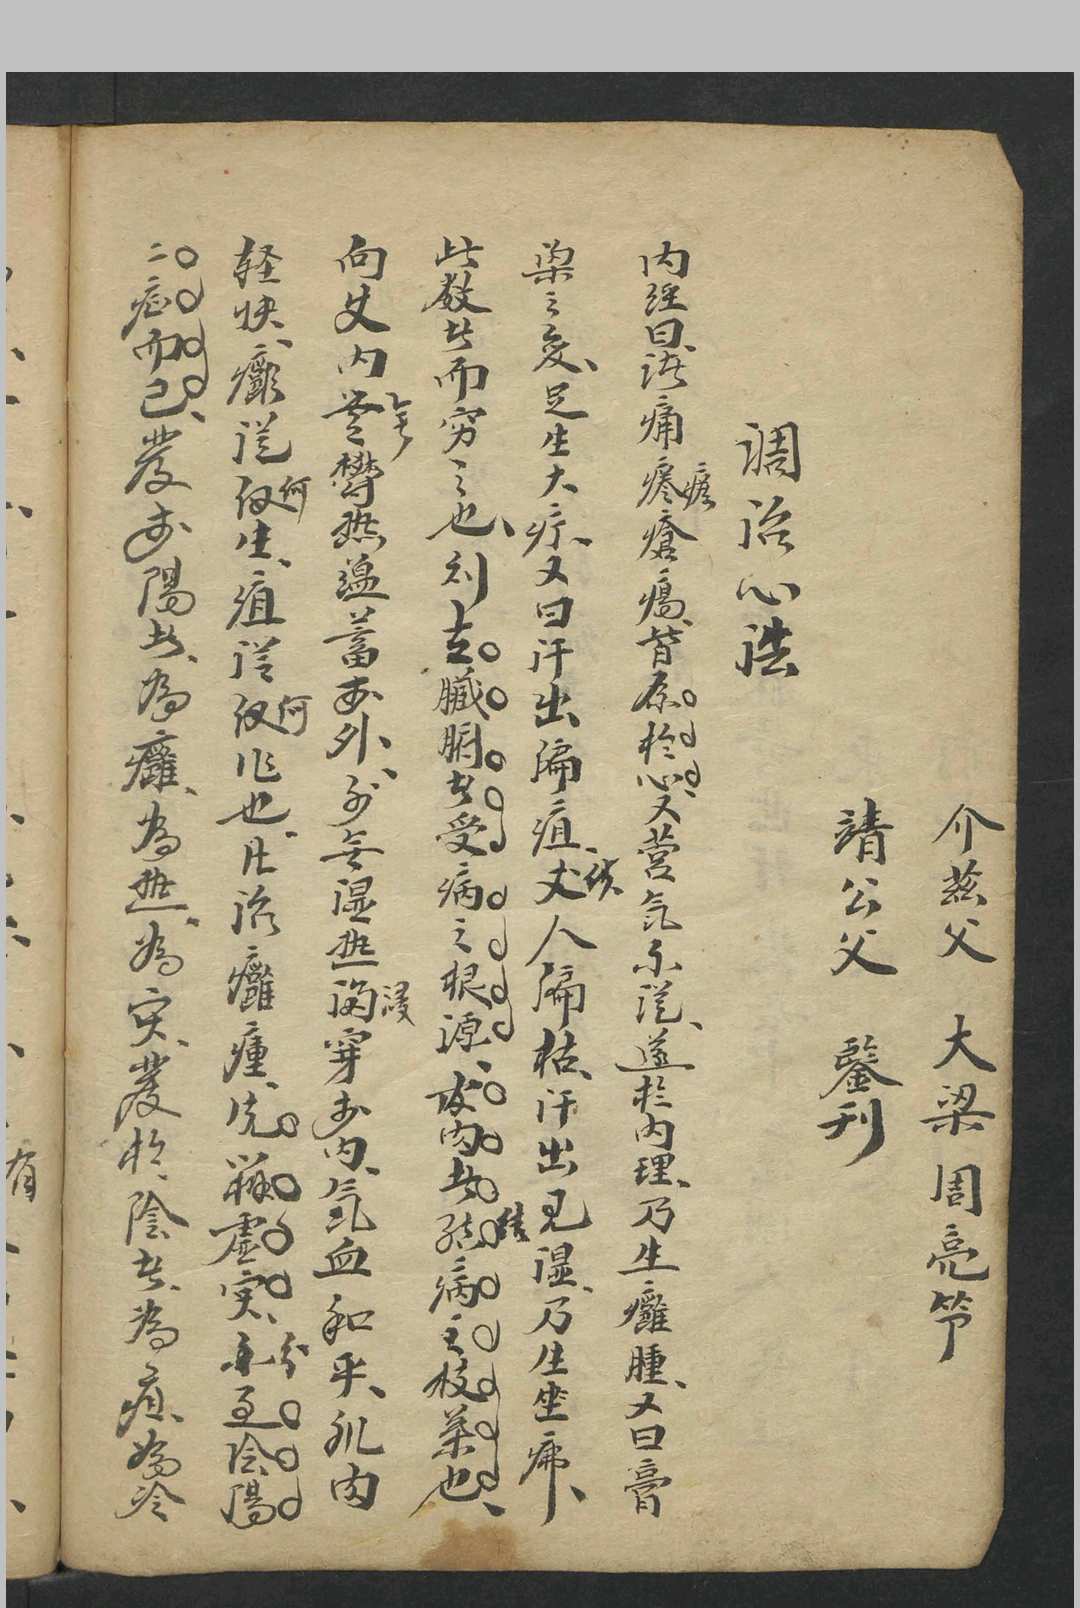 介茲父 大梁 周亮節
靖公父 鑒刊
調治心法
内經曰、諸痛痒瘡瘍、皆原於心、又營氣不從、逆於内理、乃生癰腫、又曰膏
粱之变、足生大疔、又曰汗出偏疽、丈人偏枯、汗出見湿、乃生坐疿、
此数者而窮之也、則五臟腑者受病之根源、皮肉者結病之枝葉也、
向使内無鬱热蘊蓄於外、外無湿热浸穿於内、氣血和平、肌内
轻快、癰從何生、疽從何作也、凡治癰瘇、先辨虛实、再分陰陽
二症而已、發於陽者、為癰、為热、為实、發於、陰者、為疽、為冷